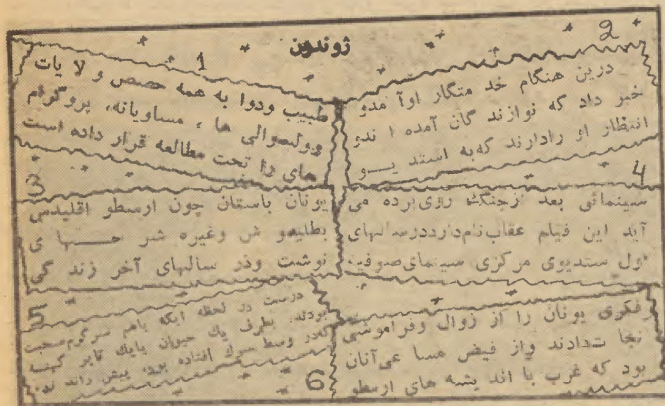 ژوندون
1
طبیب ودوا به همه حصص و لا یات
وولسوالی ها ، مساویانه، پروگرام
های را تحت مطالعه قرار داده است
2
درین هنگام خد متگار اوآ مدو
خبر داد که نوازند گان آمده ا ندو
انتظار او رادارند که به استد یـــو
3
یونان باستان چون ارسطو اقلیدسی
بطلیمو ش وغیره شر حـــها ی
نوشت ودر سالهای آخر زند گی
4
سینمائی بعد ازجنگ روی پرده می
آید این فیلم عقاب نام دارددرسالهای
اول ستدیوی مرکزی سینمای صوفیه
5
درست در لحظه ایکه باهم سرگرم صحبت
بودند، بطرف یك حیوان یایك تایر کهنه
که در وسط سرك افتاده بود، پیش راند ند.
6
فکری یونان را از زوال وفراموشی
نجا تدادند واز فیض مسا عی آنان
بود که غرب با اند یشه های ارسطو